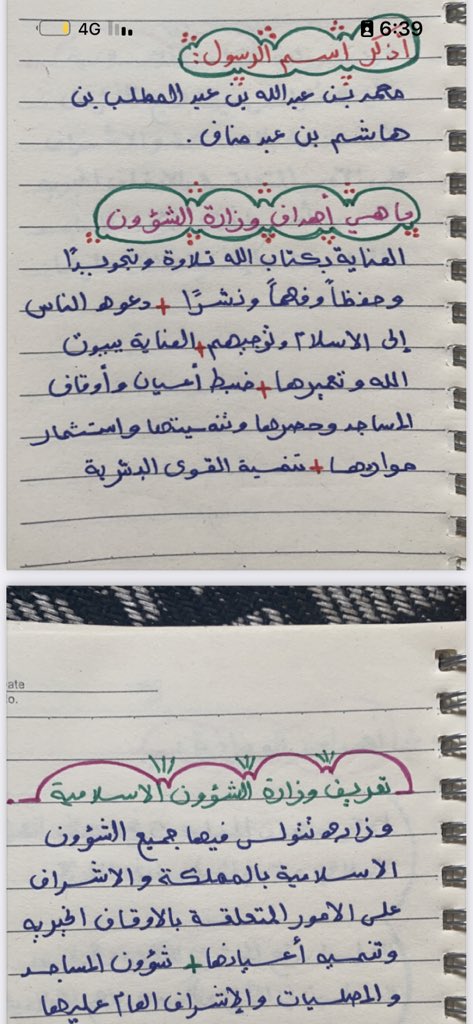 4G
6:39
أذكر أسم الرسول:
محمد بن عبدالله بن عبد المطلب بن
هاشم بن عبد مناف.
ما هي أهداف وزارة الشؤون
العناية بكتاب الله تلاوة وتجويدًا
وحفظاً وفهماً ونشرًا + دعوه الناس
إلى الاسلام وتوجيهم + العناية ببيوت
الله وتعميرها + ضبط أعيان وأوقاف
المساجد وحصرها وتنميتها واستثمار
مواردها + تنمية القوى البشرية
ate
o.
تعريف وزارة الشؤون الاسلامية
وزاره تتولى فيها جميع الشؤون
الاسلامية بالمملكة والاشراف
على الامور المتعلقة بالاوقاف الخيريه
وتنميه أعيانها + شؤون المساجد
والمصليات والإشراف العام عليها